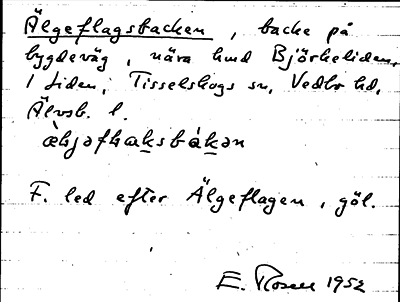 Älgeflagsbacken, backe på
bygdeväg, nära hmd Björkeliden,
1 Liden, Tisselskogs sn, Vedbo hd,
Älvsb. l.
æ̀ljəflaksbákən
F. led efter Älgeflagen, göl.
E. Rosell 1952